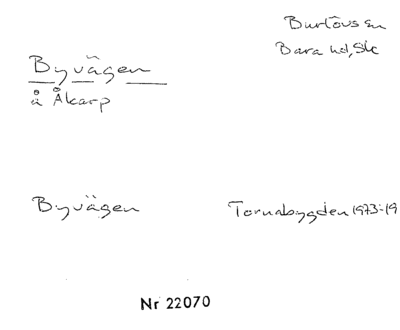 Burlövs sn
Bara hd, Sk
Byvägen
å Åkarp
Byvägen
Tornabygden 1973:19
Nr 22070